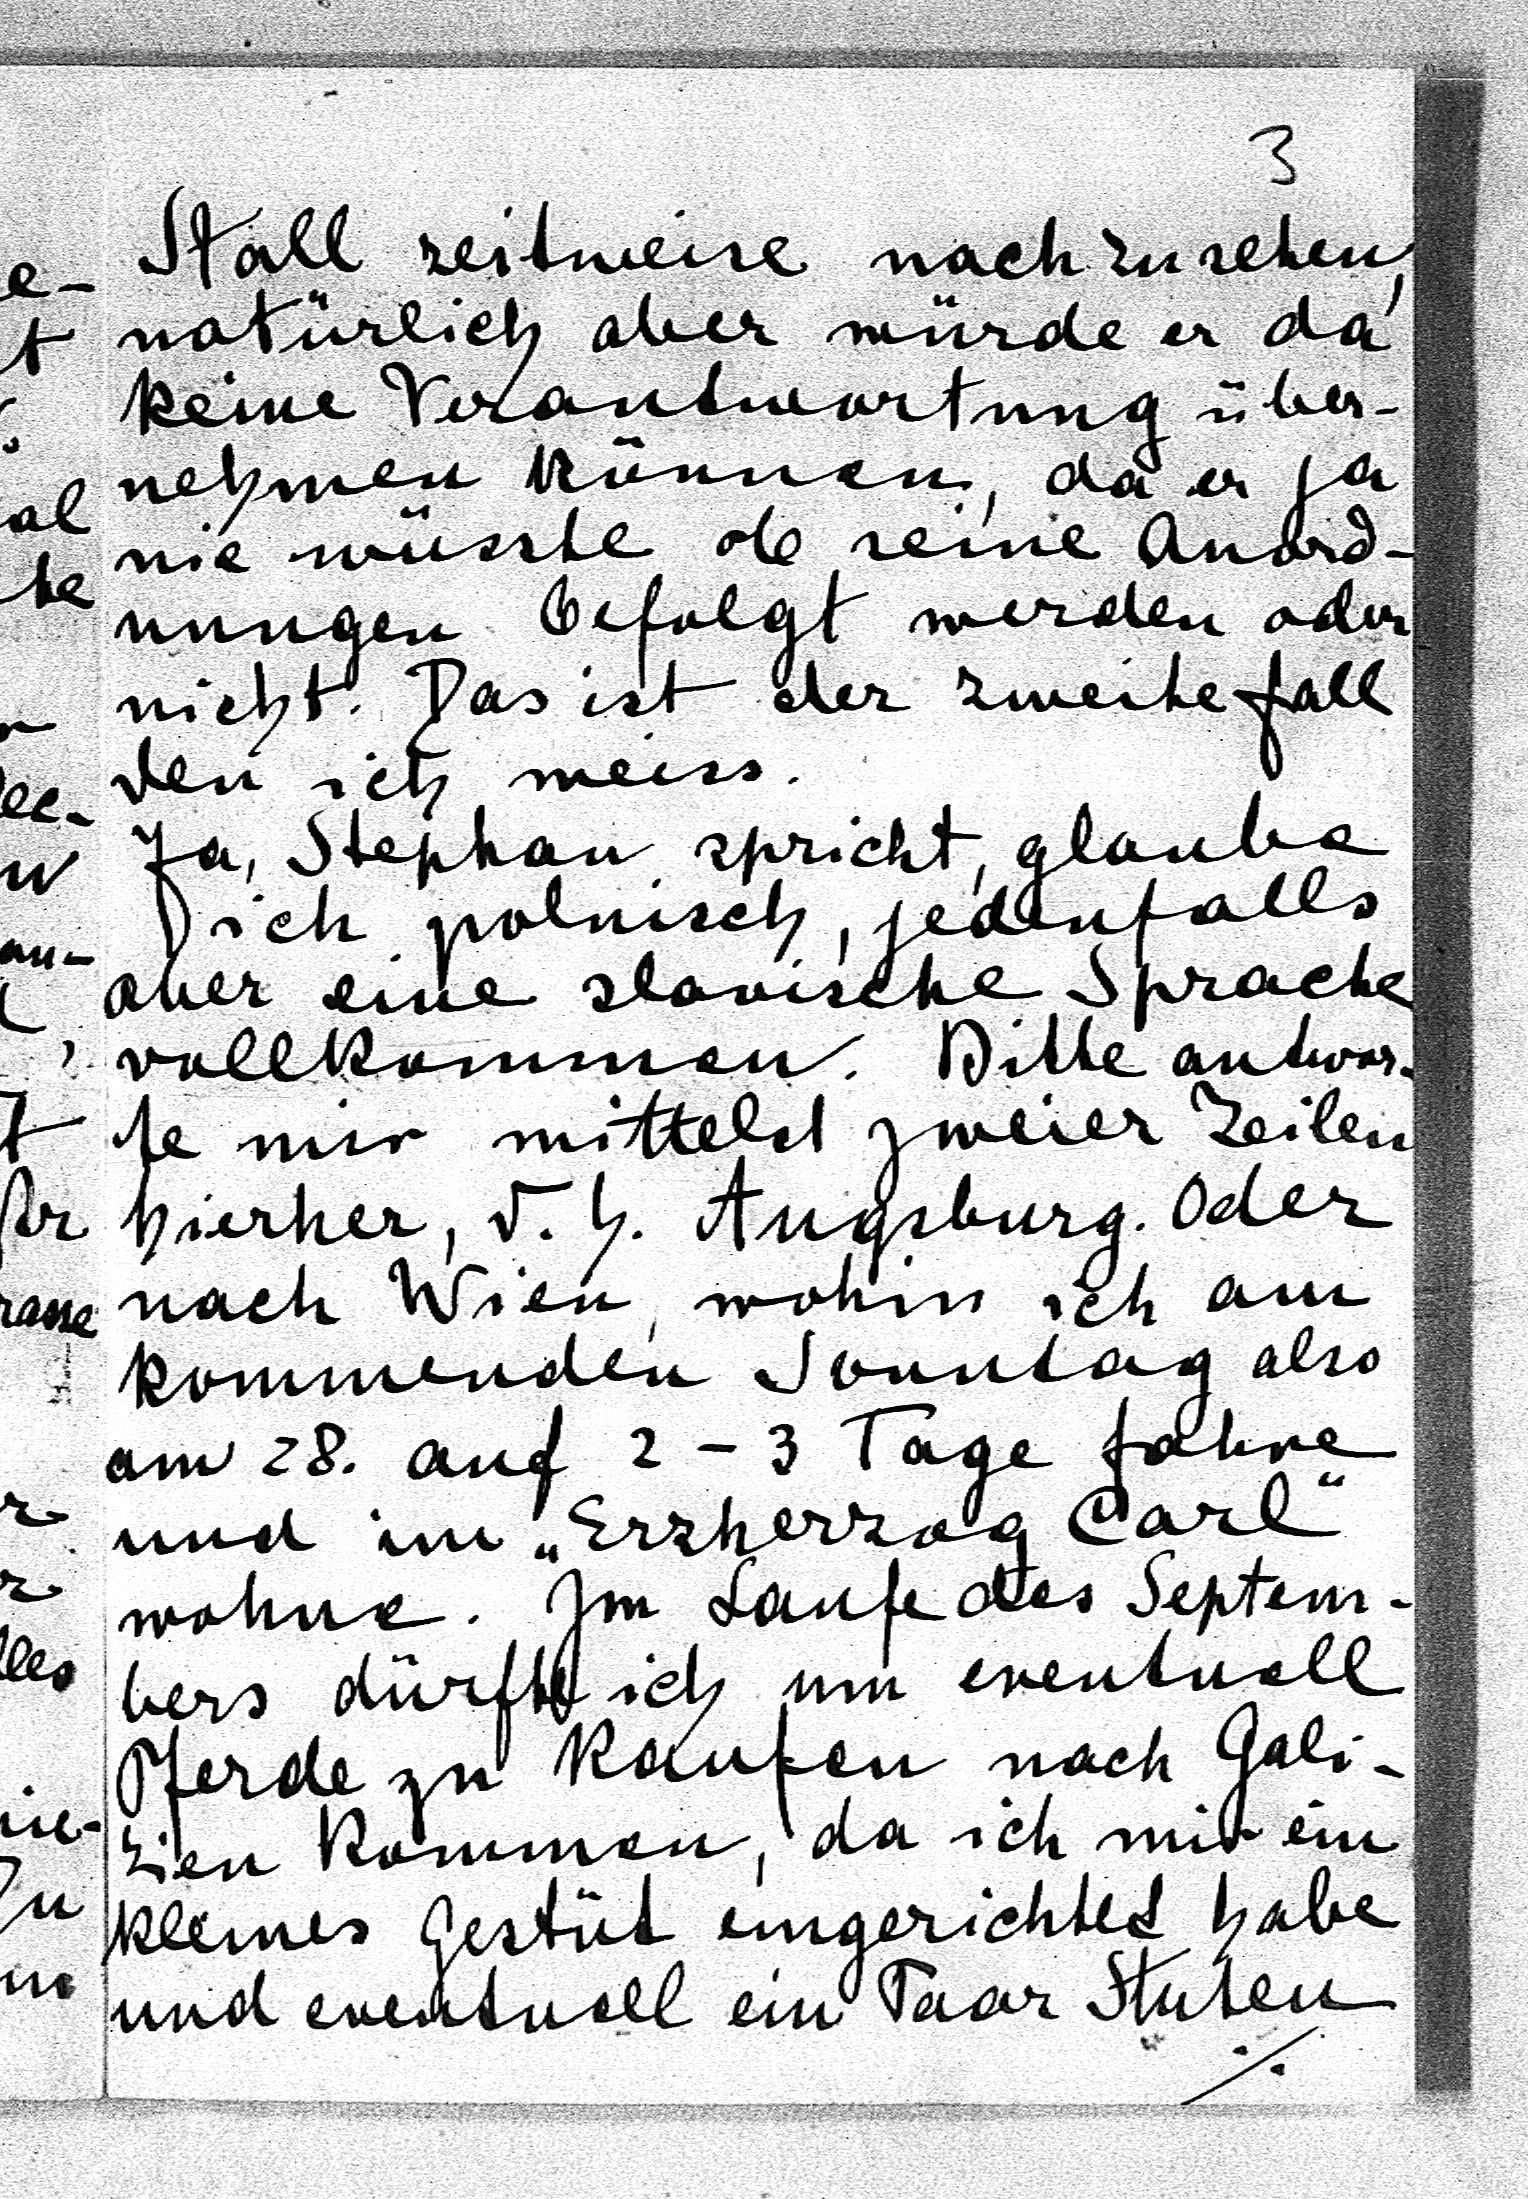 3
Stall zeitweise nachzusehen,
natürlich aber würde er da
keine Verantwortung über-
nehmen können, da er ja
nie wüsste ob seine Anord-
nungen befolgt werden oder
nicht. Das ist der zweite Fall
den ich weiss.
Ja, Stephan spricht, glaube
ich polnisch, jedenfalls
aber eine slavische Sprache
vollkommen. Bitte antwor-
te mir mittelst zweier Zeilen
hierher, d. h. Augsburg. Oder
nach Wien, wohin ich am
kommenden Sonntag also
am 28. auf 2-3 Tage fahre
und im „Erzherzog Carl“
wohne. Im Laufe des Septem-
bers dürfte ich um eventuell
Pferde zu kaufen nach Gali-
zien kommen, da ich mir ein
kleines Gestüt eingerichtet habe
und eventuell ein Paar Stuten
./.